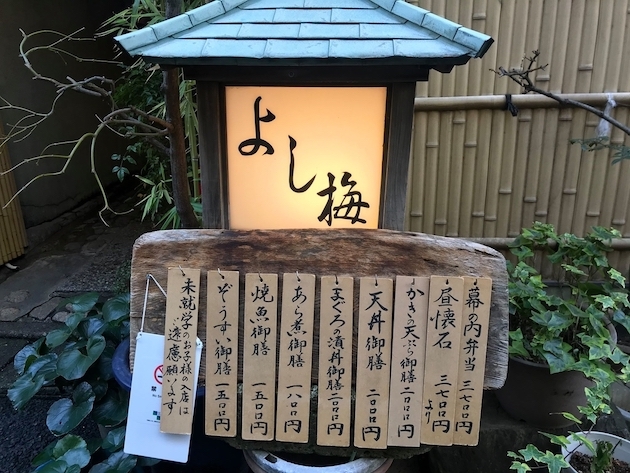 よし梅
幕の内弁当 三七〇〇円
昼懐石 三七〇〇円より
かきの天ぷら御膳 二〇〇〇円
天丼御膳 二〇〇〇円
まぐろの漬丼御膳 二〇〇〇円
あら煮御膳 一八〇〇円
焼魚御膳 一五〇〇円
ぞうすい御膳 一五〇〇円
未就学のお子様の入店は
ご遠慮願います